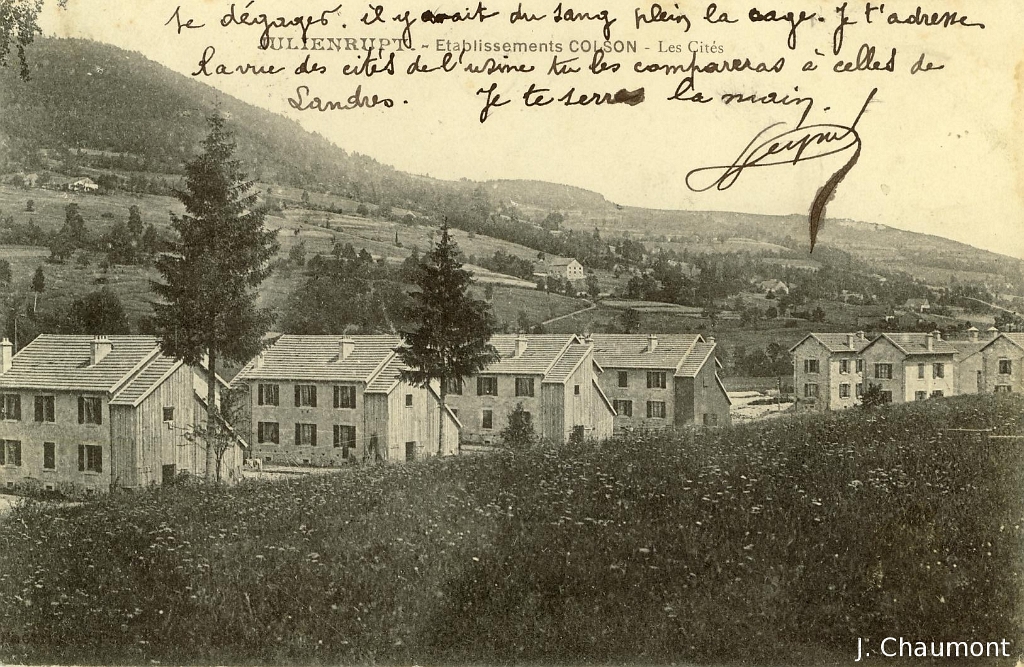 se dégager. il y avait du sang plein la cage. Je t'adresse
JULIENRUPT. - Etablissements COLSON - Les Cités
la vue des cités de l'usine tu les compareras à celles de
Landres. Je te serre la main.
J. Chaumont